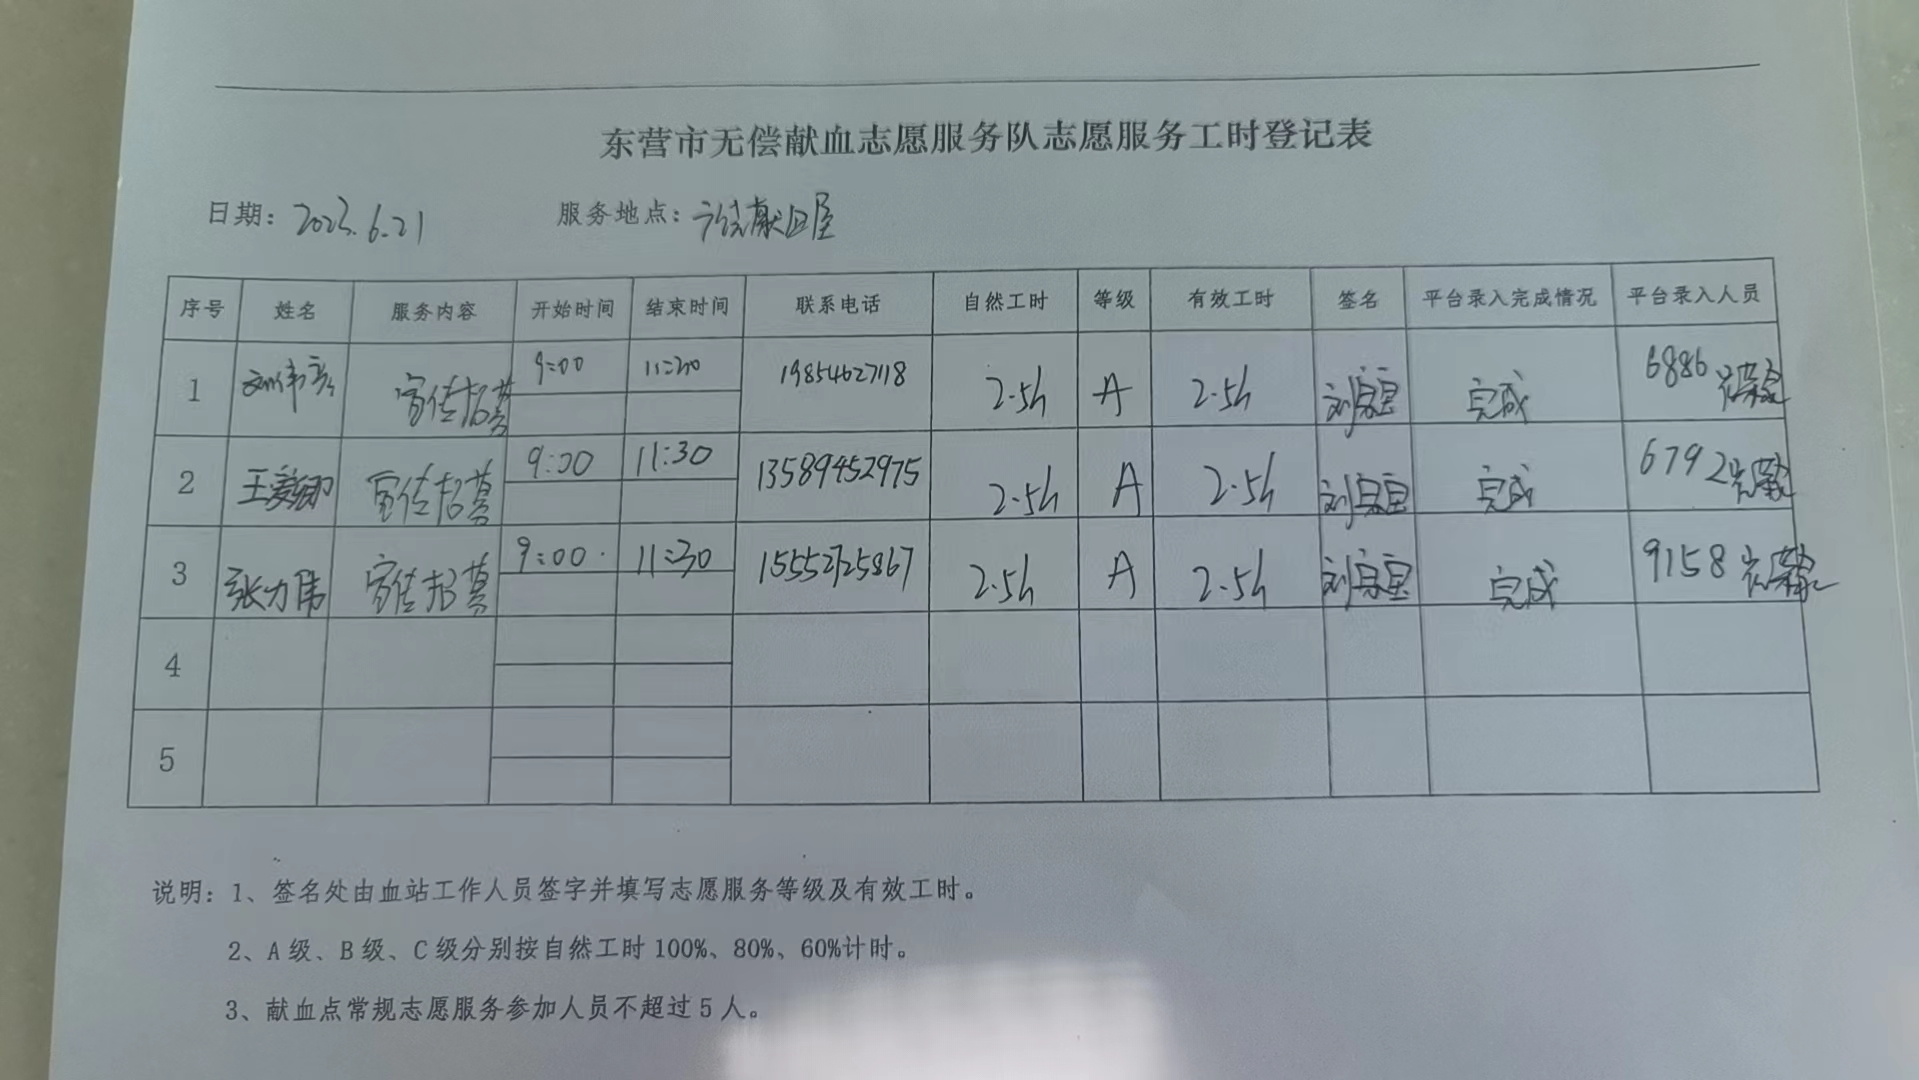 东营市无偿献血志愿服务队志愿服务工时登记表
日期: 2023.6.21 服务地点: 广饶献血屋
序号 姓名 服务内容 开始时间 结束时间 联系电话 自然工时 等级 有效工时 签名 平台录入完成情况 平台录入人员
1 宣传招募 9:00 11:30 19854627118 2.5h A 2.5h 完成 6886
2 王爱卿 宣传招募 9:00 11:30 13589452975 2.5h A 2.5h 完成 6792
3 张力伟 宣传招募 9:00 11:30 15552725867 2.5h A 2.5h 完成 9158
4
5
说明: 1、签名处由血站工作人员签字并填写志愿服务等级及有效工时。
2、A级、B级、C级分别按自然工时100%、80%、60%计时。
3、献血点常规志愿服务参加人员不超过5人。